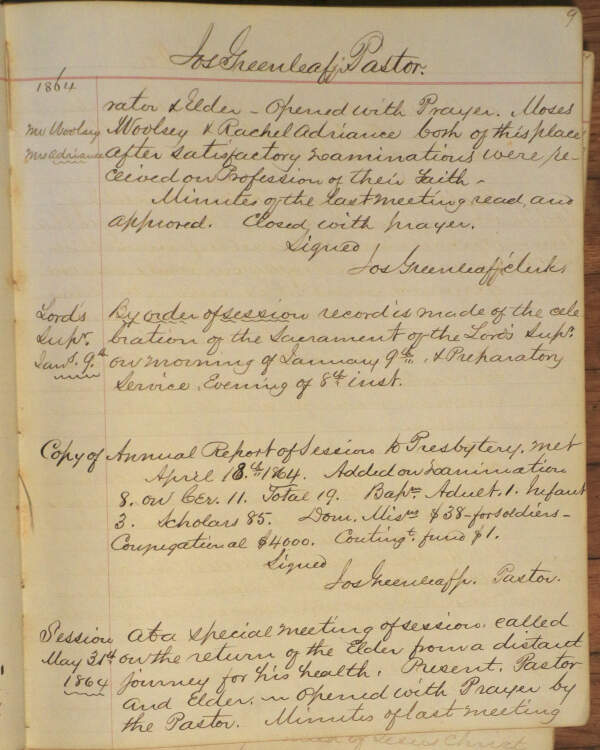 9
Jos Greenleaf jr Pastor.
1864
rator & Elder - Opened with Prayer. Moses
Mr Woolsey Woolsey & Rachel Adriance both of this place
Mrs Adriance after satisfactory examinations were re-
ceived on Profession of their Faith -
Minutes of the last meeting read, and
approved. Closed with prayer.
Signed
Jos Greenleaf jr clerk
Lord's By order of session record is made of the cele
Supr. bration of the Sacrament of the Lord's Supr.
Jany. 9.th on morning of January 9th, & Preparatory
Service, Evening of 8th inst.
Copy of Annual Report of Session to Presbytery, met
April 18th 1864. Added on examination
8. on Cer. 11. Total 19. Bapm. Adult. 1. Infant
3. Scholars 85. Dom. Miss $38 - for soldiers -
Congregational $4000. Contingt. fund $1.
Signed
Jos Greenleaf jr. Pastor.
Session At a special meeting of session, called
May 31st on the return of the Elder from a distant
1864 journey for his health. Present, Pastor
and Elder. Opened with Prayer by
the Pastor. Minutes of last meeting
of Jesus Christ